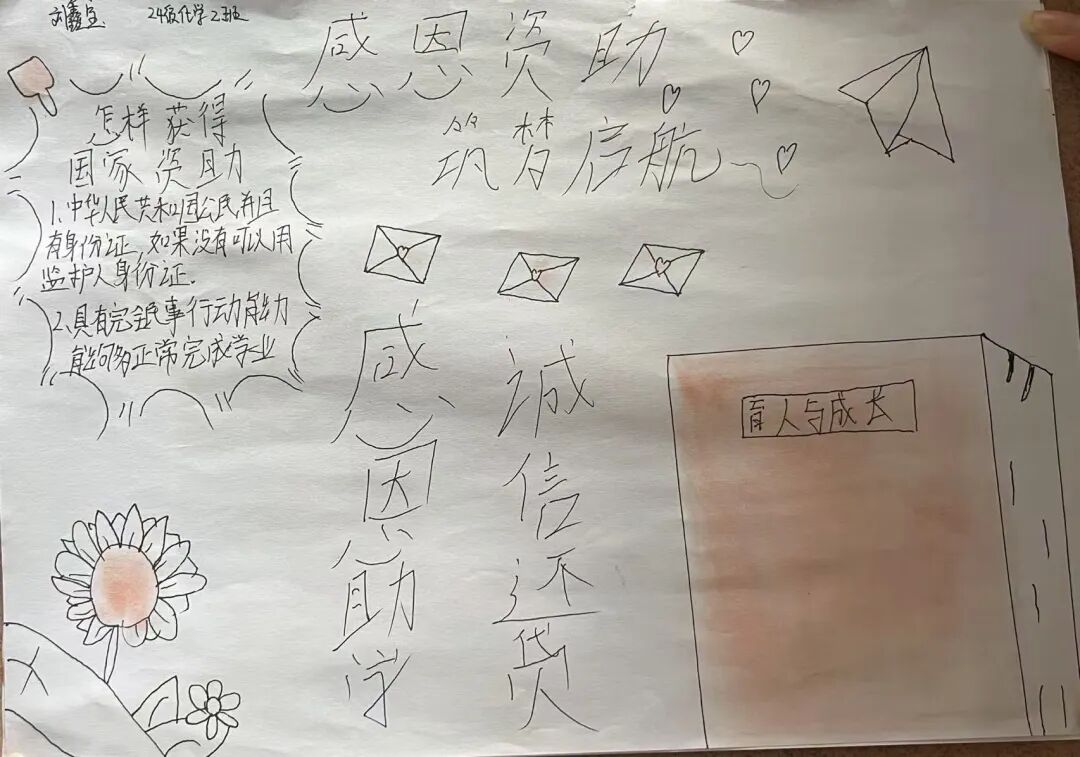 刘鑫宝 24级化学2班
感恩资助
筑梦启航
怎样获得
国家资助
1、中华人民共和国公民并且
有身份证,如果没有可以用
监护人身份证.
2、具有完全民事行动能力
能够多正常完成学业
感恩助学
诚信还贷
育人与成长